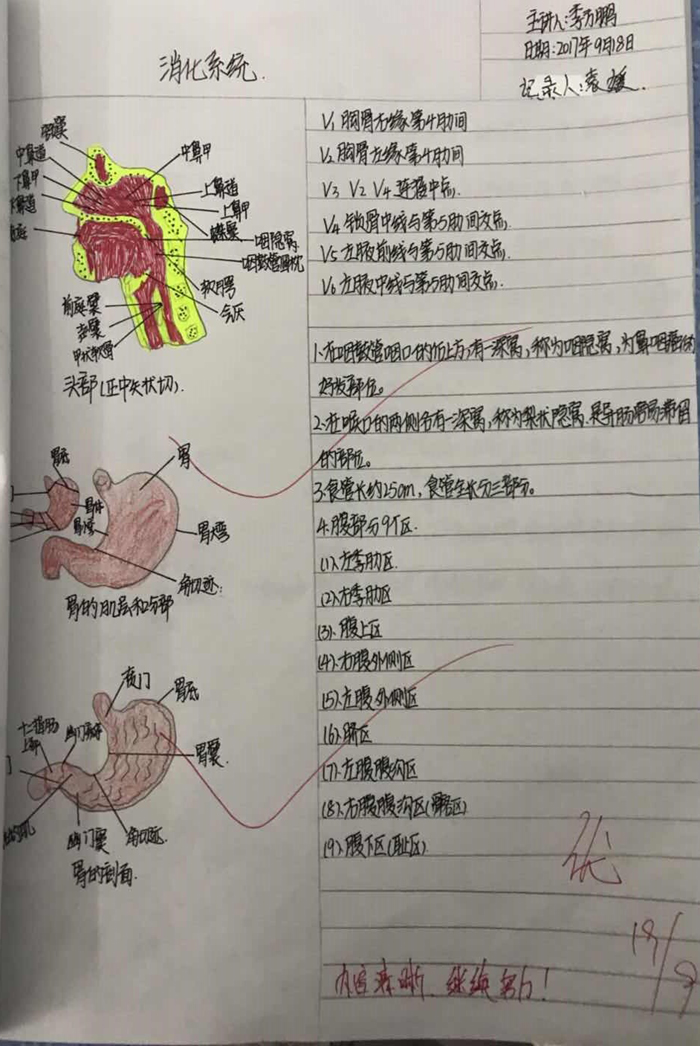 主讲人:李万鹏
日期:2017年9月18日
记录人:袁媛.
消化系统.
中鼻道
下鼻甲
下鼻道
中鼻甲
上鼻道
上鼻甲
蝶窦
咽隐窝
软腭
会厌
甲状软骨
头部(正中矢状切).
胃底
胃
胃体
胃大弯
角切迹:
胃的肌层和分部
贲门
胃底
十二指肠
上部
胃囊
幽门窦
角切迹.
胃的剖面.
V₁ 胸骨右缘第4肋间
V₂ 胸骨左缘第4肋间
V₃ V₂ V₄ 连接中点.
V₄ 锁骨中线与第5肋间交点.
V₅ 左腋前线与第5肋间交点.
V₆ 左腋中线与第5肋间交点.
1.在咽鼓管咽口的后上方,有一深窝,称为咽隐窝,为鼻咽癌的
好发部位。
2.在喉口的两侧各有一深窝,称为梨状隐窝.是异物常易滞留
的部位。
3.食管长约25cm,食管全长分三部分。
4.腹部分9个区.
(1).左季肋区
(2).右季肋区
(3).腹上区
(4).右腹外侧区
(5).左腹外侧区
(6).脐区
(7).左腹股沟区
(8).右腹股沟区(髂区)
(9).腹下区(耻区)
优
内容清晰.继续努力!